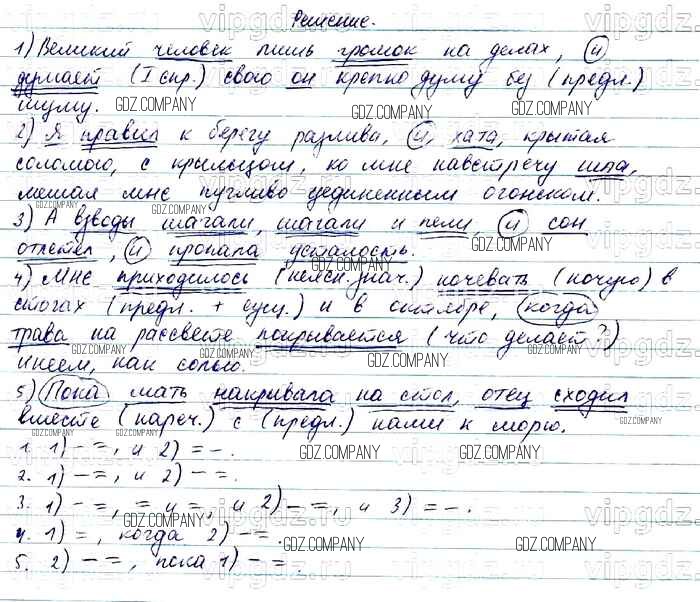 Решение.
1) Великий человек лишь громок на делах, и
думает (I спр.) свою он крепко думу без (предл.)
шуму.
2) Я правил к берегу разлива, и, хата, крытая
соломою, с крыльцом, ко мне навстречу шла,
мешая мне пугливо уединенным огоньком.
3) А взводы шагали, шагали и пели, и сон
отлетел, и пропала усталость.
4) Мне приходилось (неизм. знач.) ночевать (ночую) в
стогах (предл. + сущ.) и в октябре, когда
трава на рассвете покрывается (что делает?)
инеем, как солью.
5) Пока мать накрывала на стол, отец сходил
вместе (нареч.) с (предл.) нами к морю.
1. 1) – =, и 2) = –.
2. 1) – =, и 2) – =.
3. 1) – =, = и =, и 2) – =, и 3) = –.
4. 1) =, когда 2) – =.
5. 2) – =, пока 1) – =.